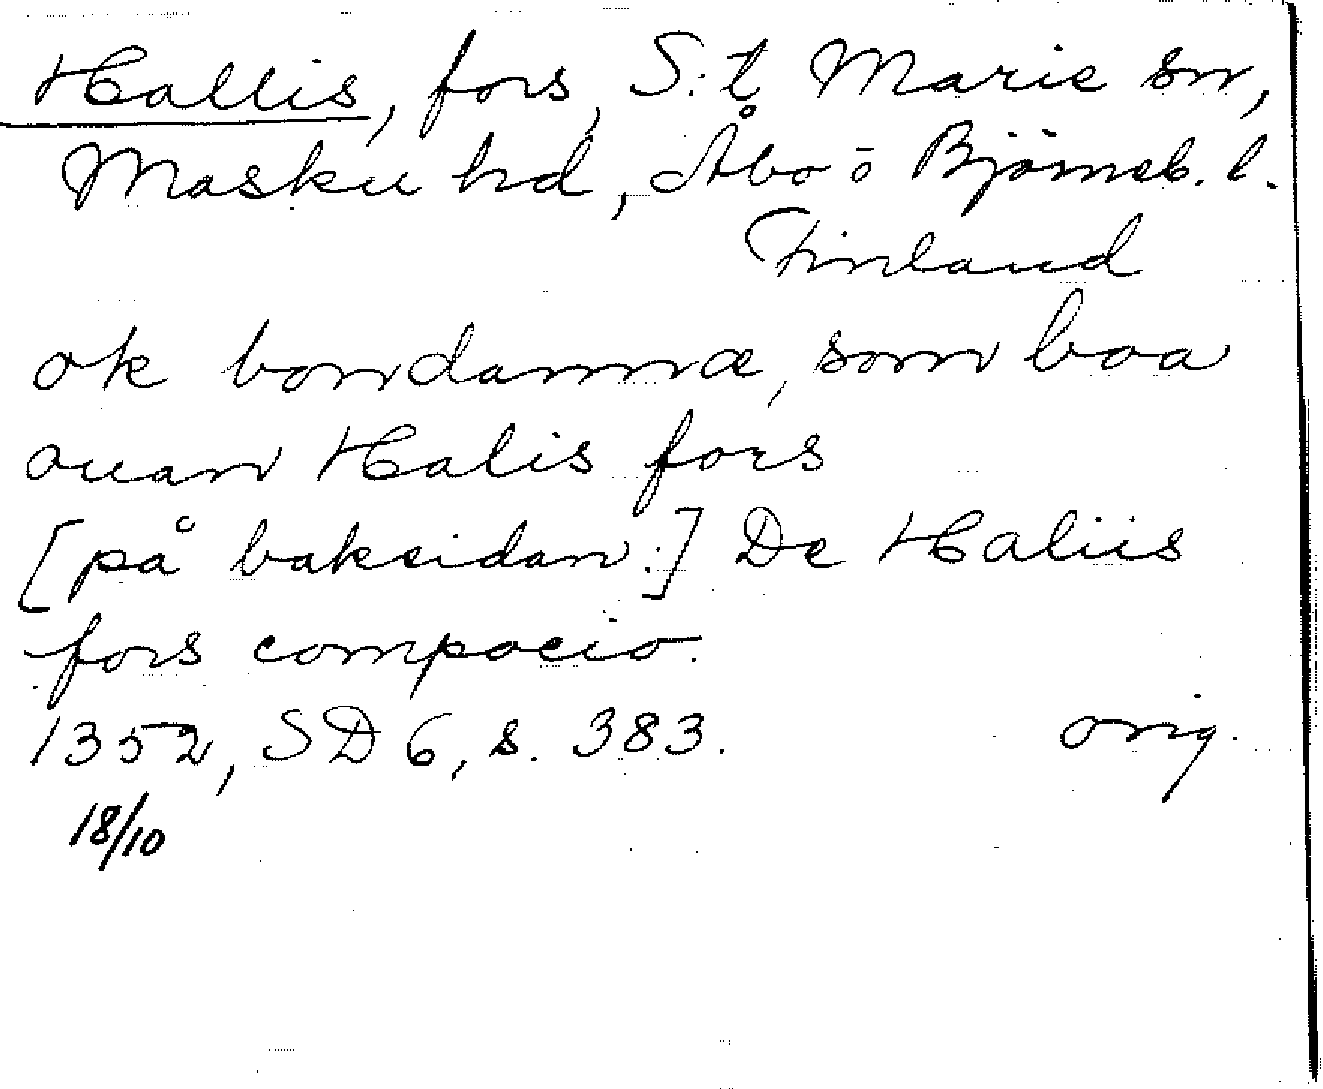 Hallis, fors, S:t Marie sn,
Masku hd, Åbo o Björneb. l.
Finland
ok bondamnæ, som boa
ouan Halis fors
[på baksidan:] De Haliis
fors compocio.
1352, SD 6, s. 383. orig.
18/10